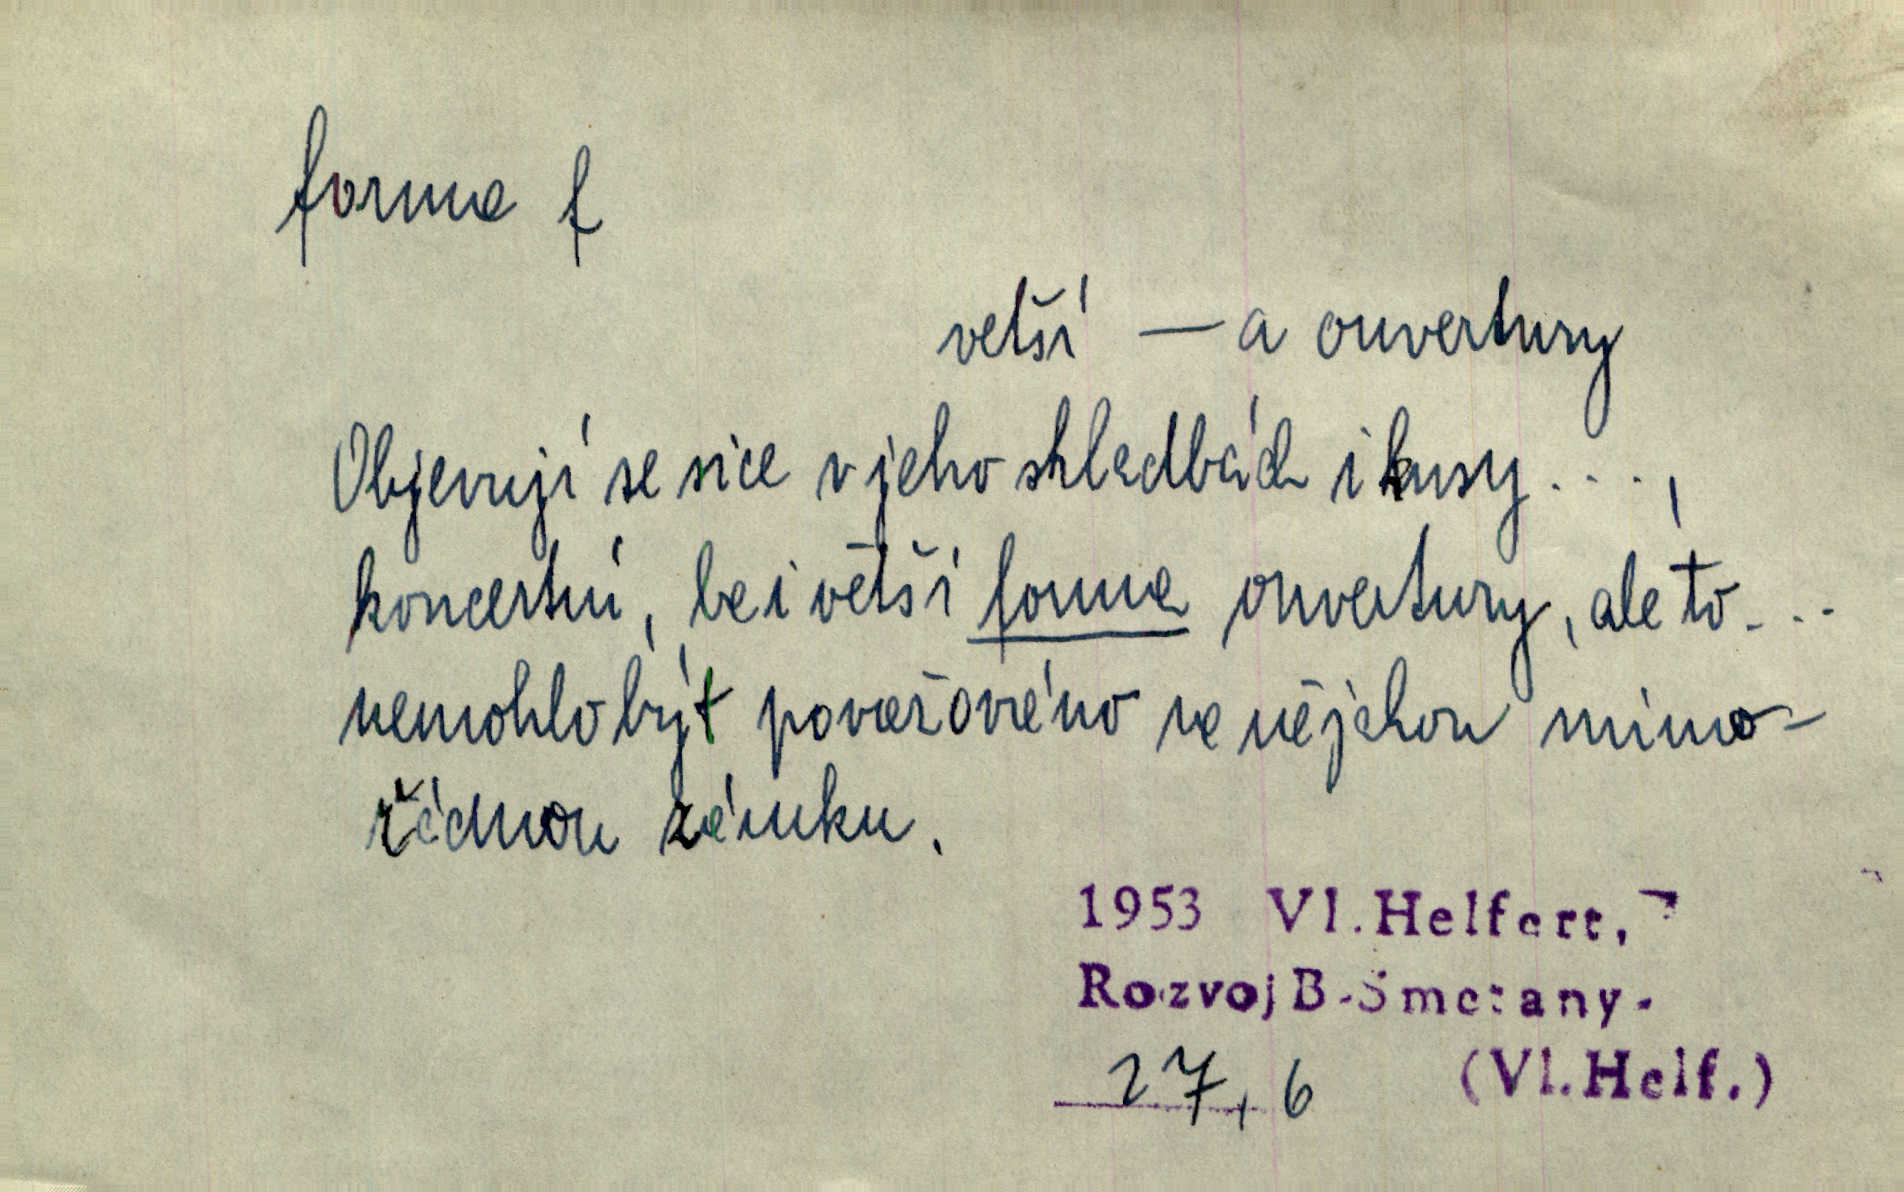 forma f
větší — a ouvertury
Objevují se sice v jeho skladbách i kusy . . . ,
koncertní, ba i větší forma ouvertury, ale to . . .
nemohlo být považováno za nějakou mimo-
řádnou záruku.
1953 Vl. Helfert,
Rozvoj B. Smetany.
27, 6 (Vl. Helf.)